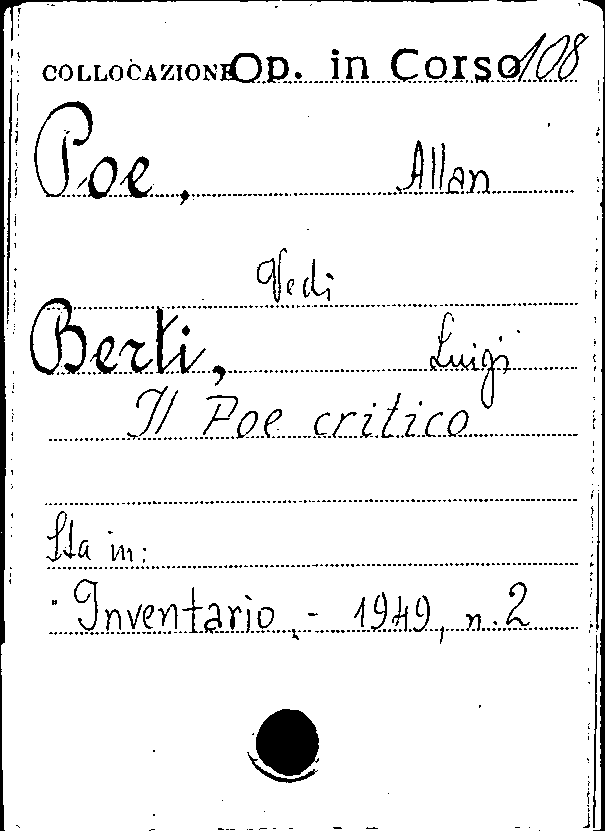 COLLOCAZIONE Op. in Corso 108
Poe, Allan
Vedi
Berti, Luigi
Il Poe critico
Sta in:
"Inventario, - 1949, n. 2